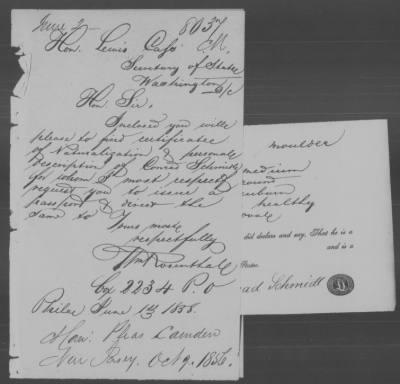 June 2 — 8037
Hon. Lewis Cass
Secretary of State
Washington D/c
Hon. Sir.
Enclosed you will
please to find certificate
of Naturalization & personal
description of Conrad Schmidt
for whom I most respect
request you to issue a
passport & direct the
same to
Yours most
respectfully
Wm Rosenthal
box 2234 P. O
Philad June 1st 1858.
Camden
New Jersey. Oct 9. 1856.
moulder
medium
round
auburn
healthy
oval
did declare and say, That he is a
and is a
ad Schmidt